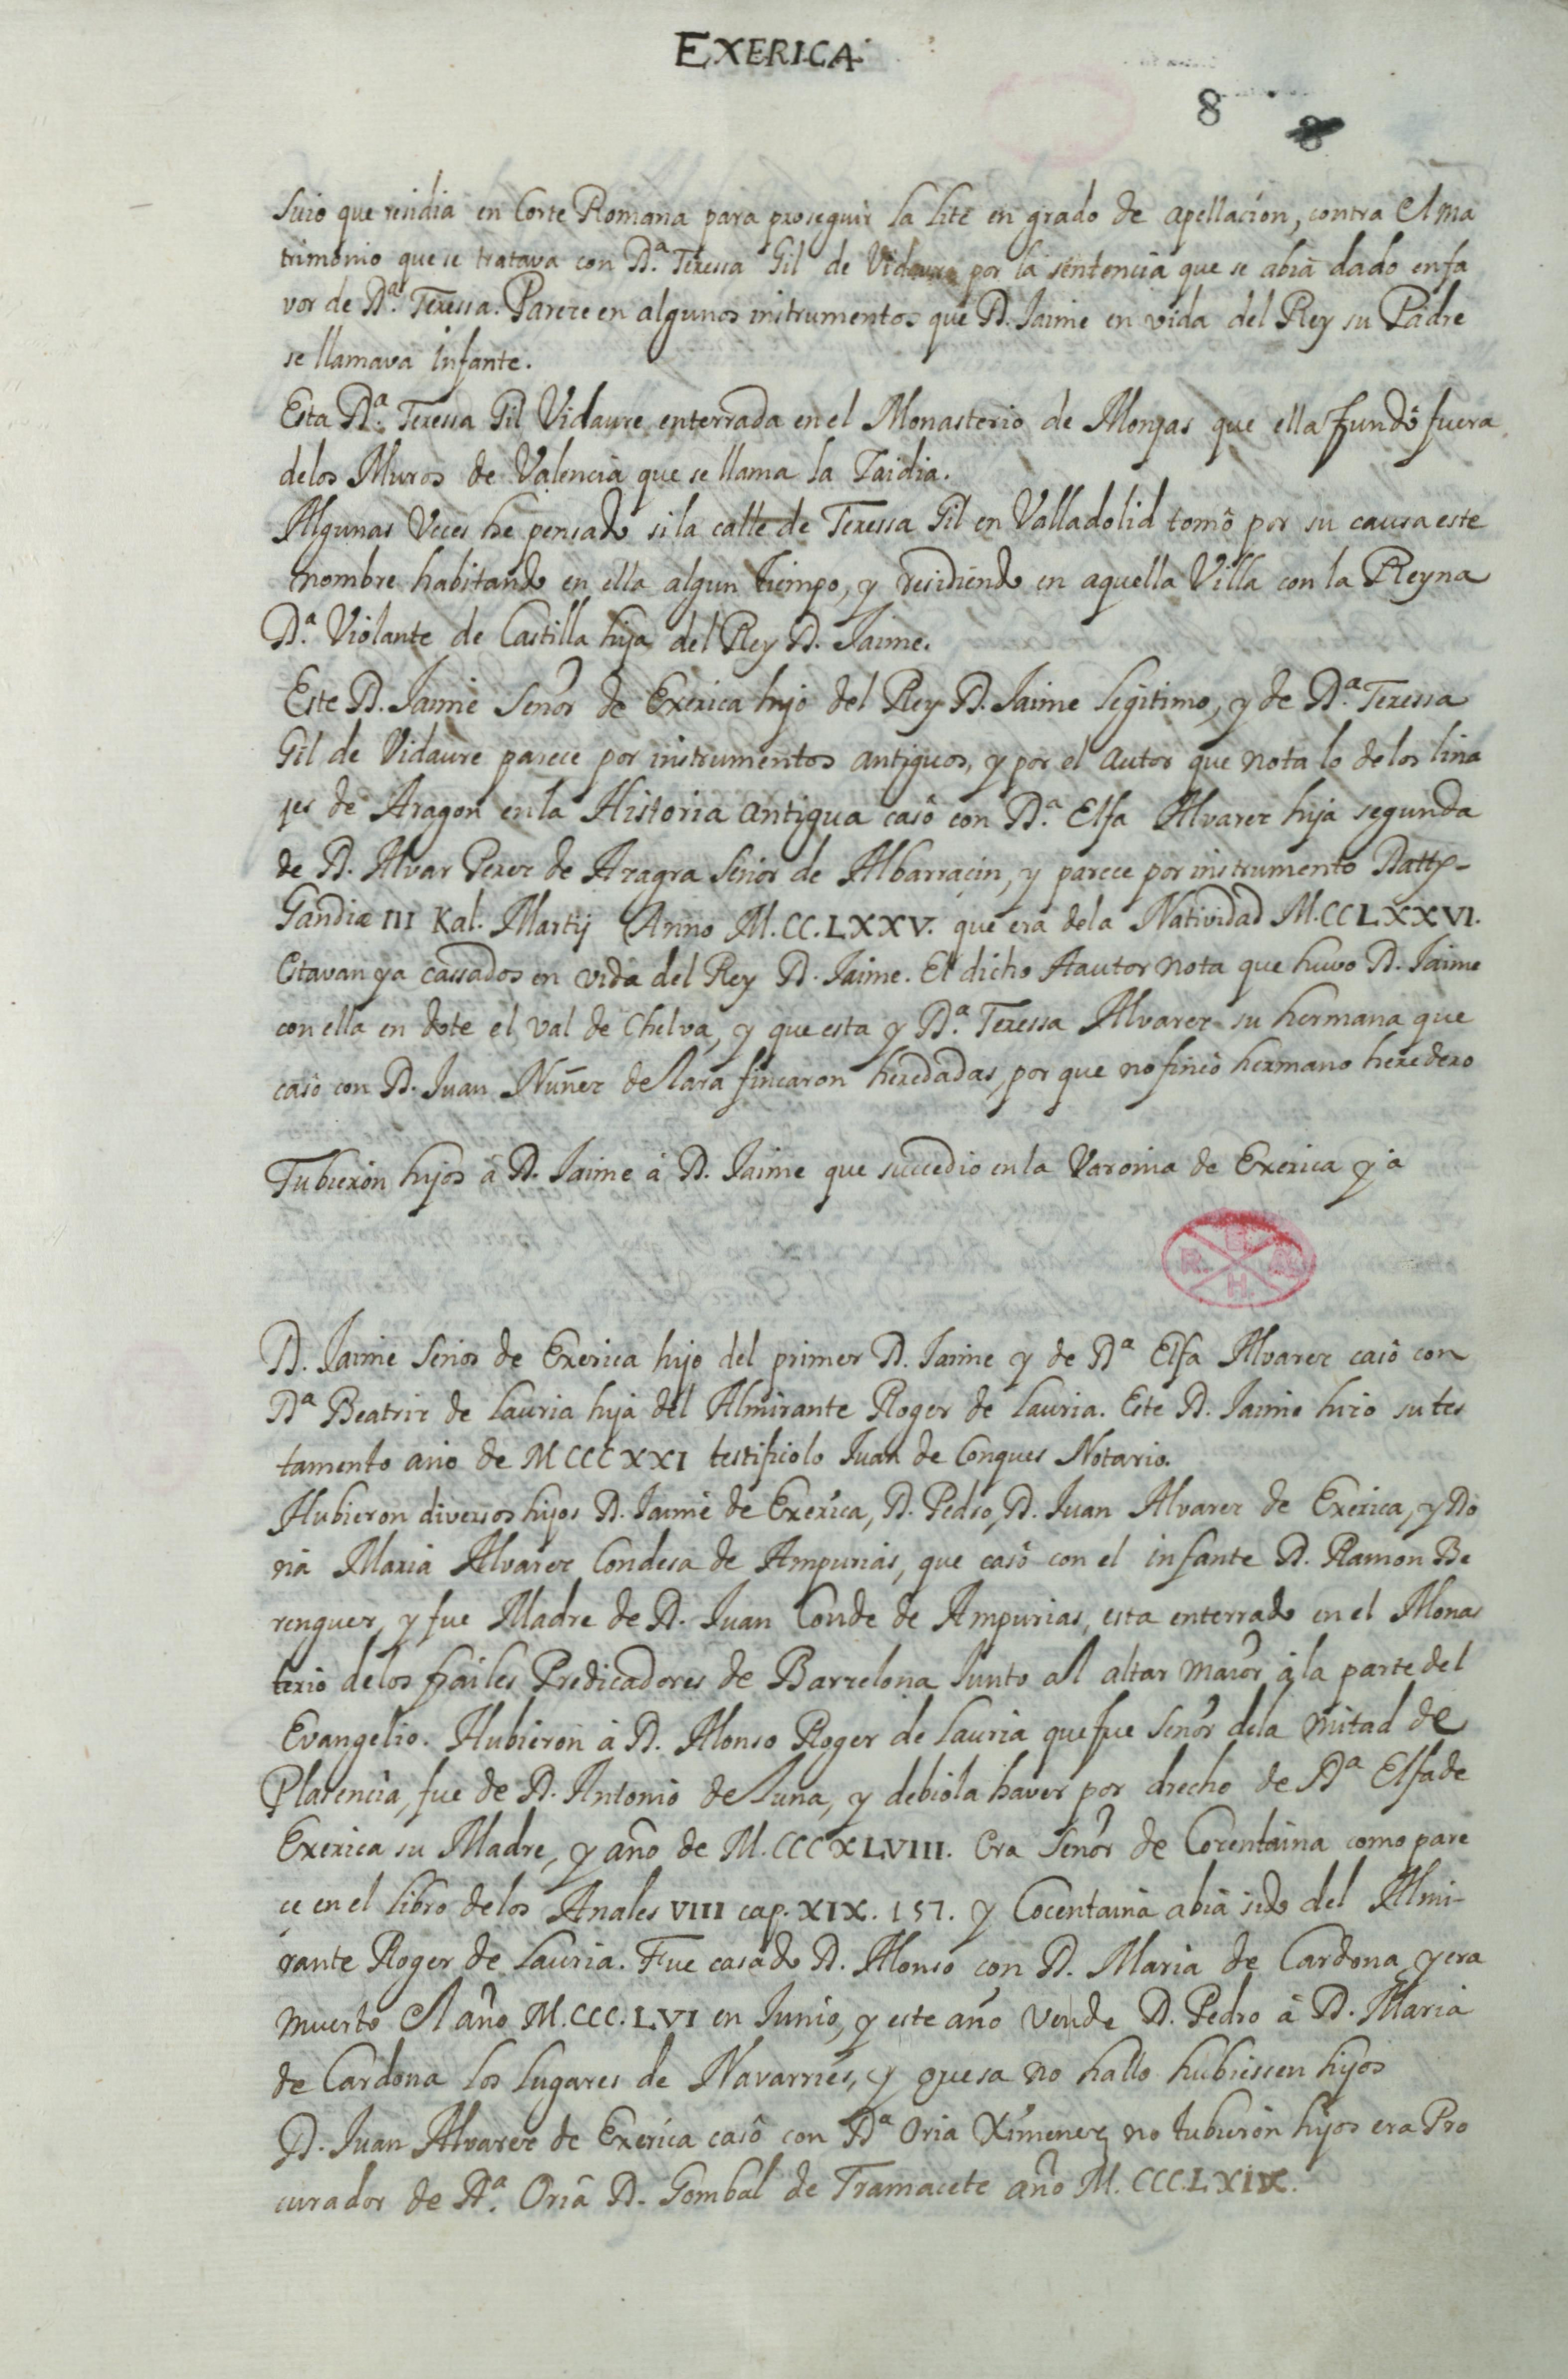 EXERICA
8 8
suio que residia en Corte Romana para proseguir la lite en grado de apellacion, contra el ma
trimonio que se tratava con D.ª Teressa Gil de Vidaure por la sentencia que se abia dado en fa
vor de D.ª Teressa. Pareze en algunos instrumentos que D. Jaime en vida del Rey su Padre
se llamava infante.
Esta D.ª Teressa Gil Vidaure enterrada en el Monasterio de Monjas que ella fundô fuera
de los Muros de Valencia que se llama la Zaidia.
Algunas veces he pensado si la calle de Teressa Gil en Valladolid tomô por su causa este
nombre habitando en ella algun tiempo, y residiendo en aquella Villa con la Reyna
D.ª Violante de Castilla hija del Rey D. Jaime.
Este D. Jaime Señor de Exerica hijo del Rey D. Jaime legitimo, y de D.ª Teressa
Gil de Vidaure parece por instrumentos antiguos, y por el autor que nota lo de los lina
jes de Aragon en la Historia antigua casô con D.ª Elfa Alvarez hija segunda
de D. Alvar Perez de Azagra Señor de Albarraçin, y parece por instrumento Datty-
Gandiæ III Kal. Martij Anno M.CC.LXXV. que era de la Natividad M.CCLXXVI.
Estavan ya cassados en vida del Rey D. Jaime. El dicho Aautor nota que huvo D. Jaime
con ella en dote el val de Chelva, y que esta y D.ª Teressa Alvarez su hermana que
casô con D. Juan Nuñez de Lara fincaron heredadas, por que no fincô hermano heredero
Tubieron hijos â D. Jaime â D. Jaime que succedio en la Varonia de Exerica y â
R. B. A. H.
D. Jaime Señor de Exerica hijo del primer D. Jaime y de Dª Elfa Alvarez casô con
Dª Beatriz de Lauria hija del Almirante Roger de Lauria. Este D. Jaime hizo su tes
tamento año de MCCCXXI testificolo Juan de Conques Notario.
Hubieron diversos hijos D. Jaime de Exerica, D. Pedro, D. Juan Alvarez de Exerica, y Do
ña Maria Alvarez Condesa de Ampurias, que casô con el infante D. Ramon Be
renguer, y fue Madre de D. Juan Conde de Ampurias, esta enterrado en el Monas
terio de los frailes Predicadores de Barzelona Junto al altar maior â la parte del
Evangelio. Hubieron â D. Alonso Roger de Lauria que fue Señor de la mitad de
Plazencia, fue de D. Antonio de Luna, y debiola haver por drecho de Dª Elfa de
Exerica su Madre, y año de M.CCCXLVIII. era Señor de Cocentaina como pare
ce en el libro de los Anales VIII cap. XIX. 157. y Cocentaina abia sido del Almi-
rante Roger de Lauria. Fue casado D. Alonso con D. Maria de Cardona, y era
muerto el año M.CCC.LVI en Junio, y este año vende D. Pedro â D. Maria
de Cardona los lugares de Navarrés, y quesa no hallo hubiessen hijos
D. Juan Alvarez de Exerica casô con Dª Oria Ximenez no tubieron hijos era Pro
curador de D.ª Oria D. Gombal de Tramacete año M.CCC.LXIX.